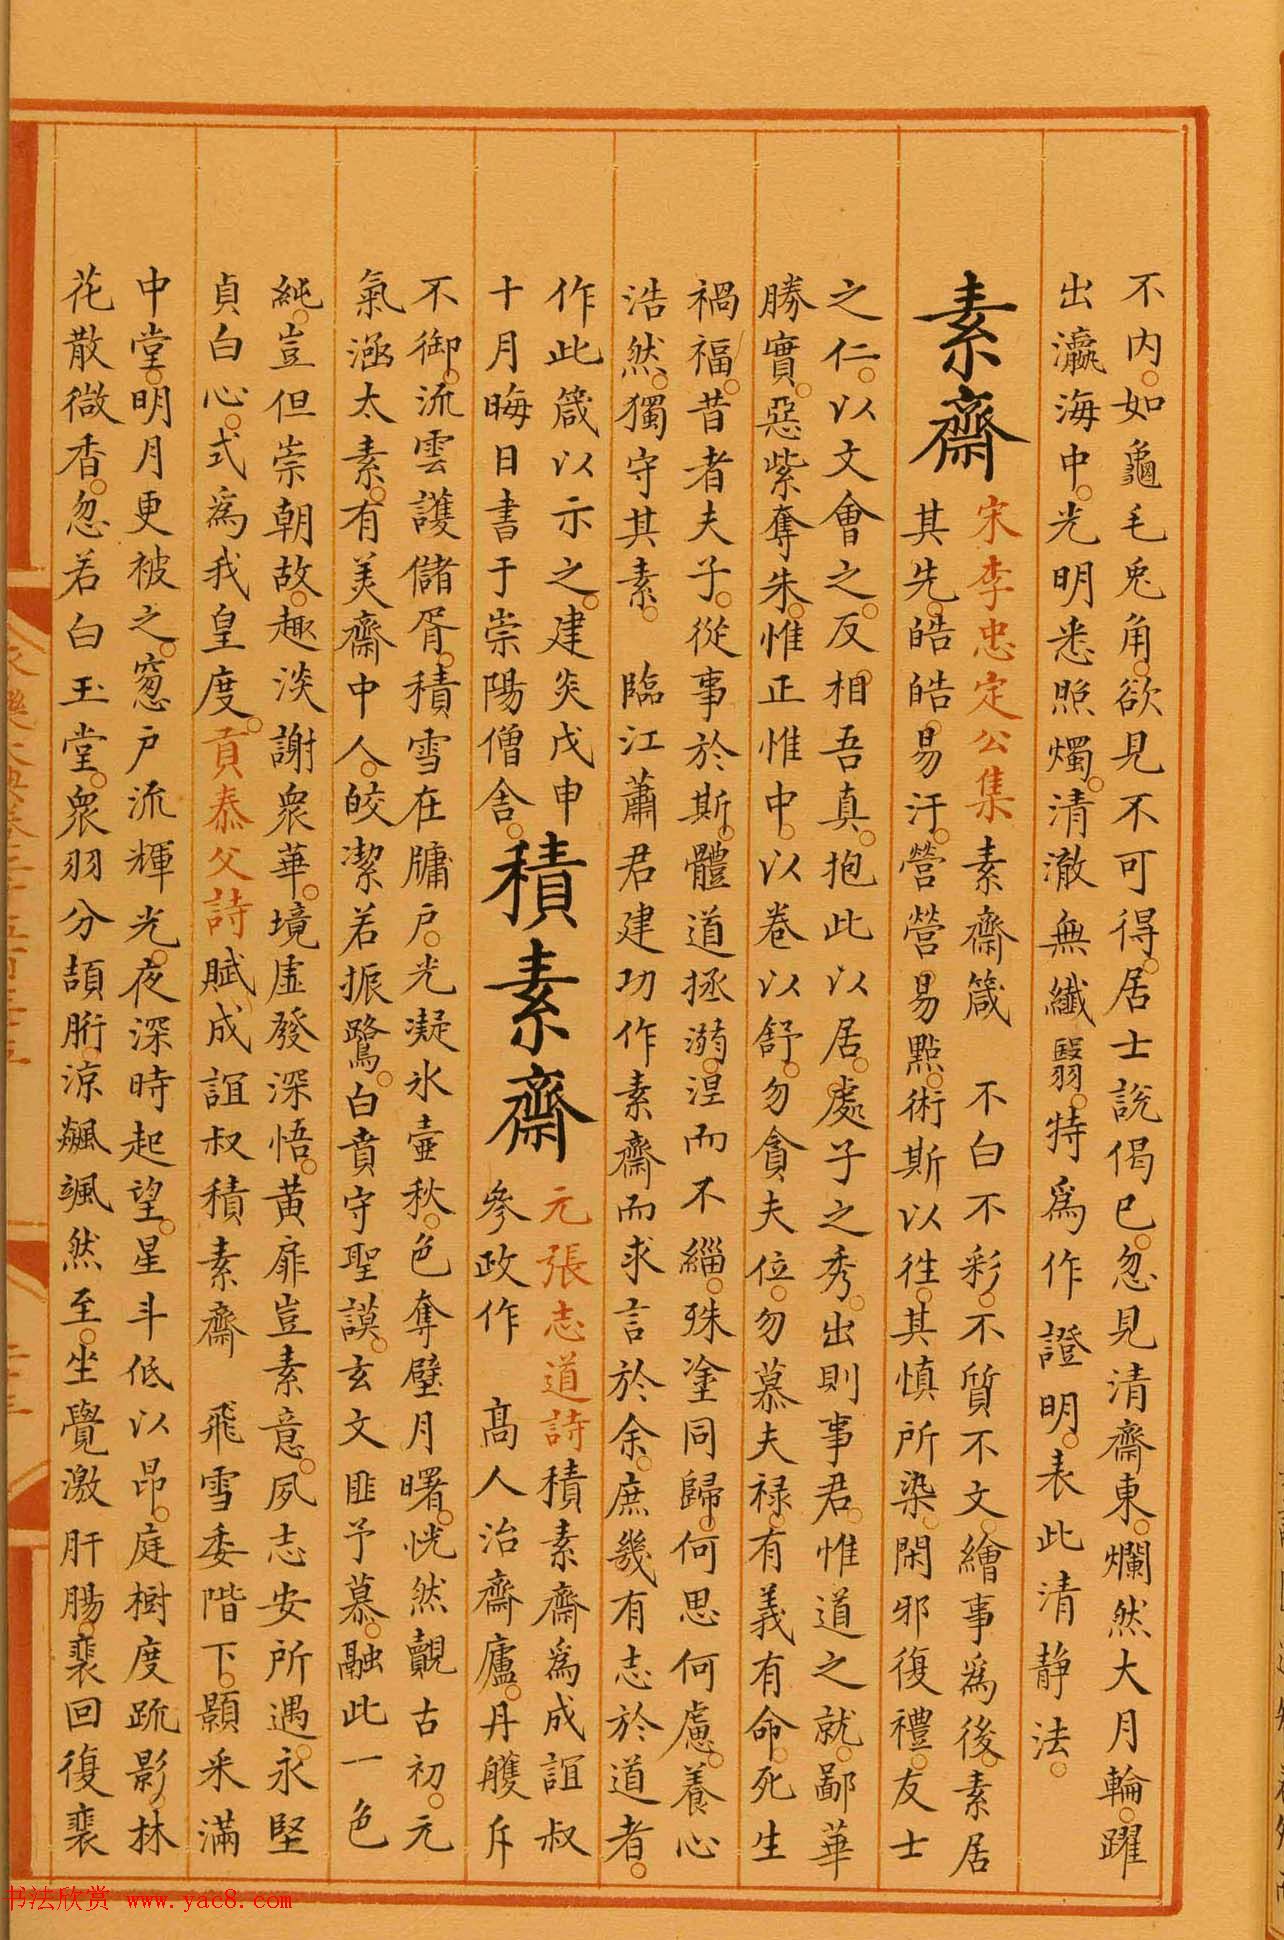 不内。如龜毛兎角。欲見不可得。居士說偈已。忽見清齋東。爛然大月輪。躍
出瀛海中。光明悉照燭。清澈無纖翳。特爲作證明。表此清静法。
素齋
宋李忠定公集素齋箴 不白不彩。不質不文。繪事爲後。素居
其先。皓皓易汙。營營易點。術斯以徃。其慎所染。閑邪復禮。友士
之仁。以文會之。反相吾真。抱此以居。處子之秀。出則事君。惟道之就。鄙華
勝實。惡紫奪朱。惟正惟中。以卷以舒。勿貪夫位。勿慕夫禄。有義有命。死生
禍福。昔者夫子。從事於斯。體道拯溺。涅而不緇。殊塗同歸。何思何慮。養心
浩然。獨守其素。 臨江蕭君建功作素齋而求言於余。庶幾有志於道者。
作此箴以示之。建炎戊申
十月晦日書于崇陽僧舎。
積素齋
元張志道詩積素齋爲成誼叔
參政作 高人治齋廬。丹雘斥
不御。流雲護儲胥。積雪在牗户。光凝氷壺秋。色奪壁月曙。恍然覿古初。元
氣涵太素。有美齋中人。皎潔若振鷺。白賁守聖謨。玄文匪予慕。融此一色
純。豈但崇朝故。趣淡謝衆華。境虚發深悟。黄扉豈素意。夙志安所遇。永堅
貞白心。式爲我皇度。貢泰父詩賦成誼叔積素齋 飛雪委階下。顥采滿
中堂。明月更被之。窻户流輝光。夜深時起望。星斗低以昂。庭樹度疏影。林
花散微香。忽若白玉堂。衆羽分頡胻。涼飈颯然至。坐覺激肝腸。裴回復裴
书法欣赏 www.yac8.com